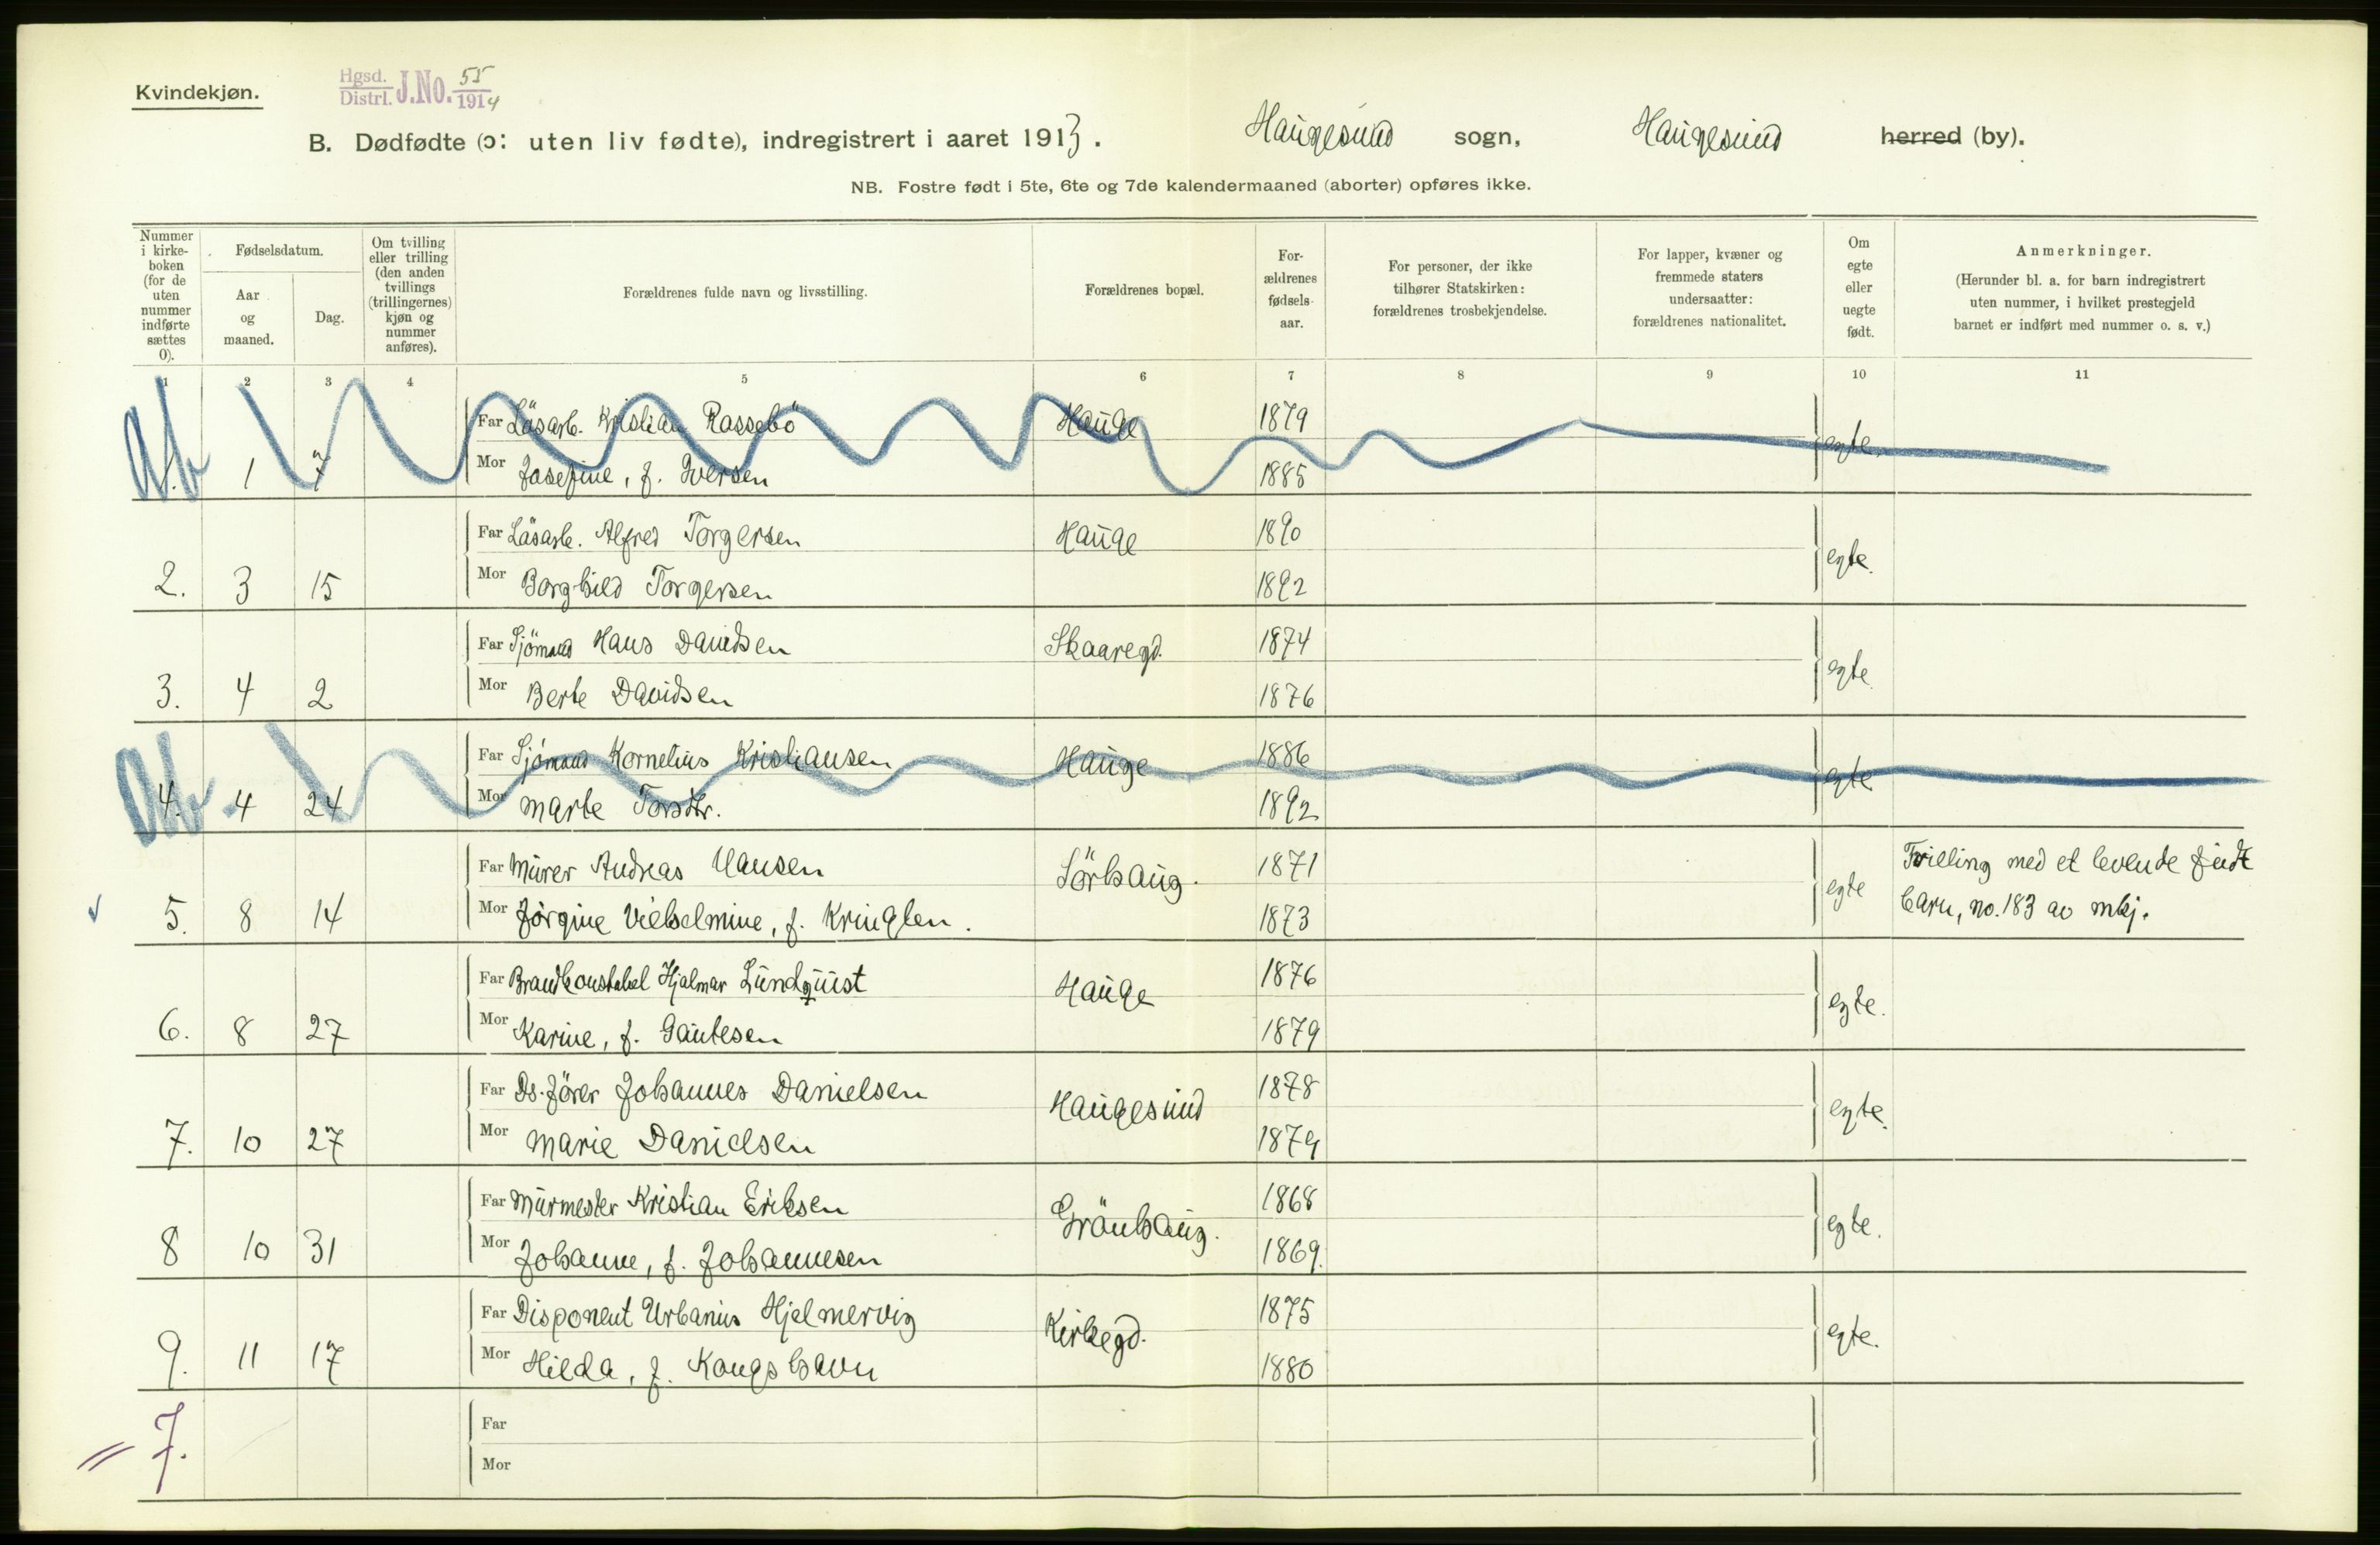 Kvindekjøn.
Hgsd. Distrl. J.No. 55 1914
B. Dødfødte (ɔ: uten liv fødte), indregistrert i aaret 1913. Haugesund sogn, Haugesund herred (by).
NB. Fostre født i 5te, 6te og 7de kalendermaaned (aborter) opføres ikke.
Nummer i kirke-boken (for de uten nummer indførte sættes 0).
Fødselsdatum.
Aar og maaned.
Dag.
Om tvilling eller trilling (den anden tvillings (trillingernes) kjøn og nummer anføres).
Forældrenes fulde navn og livsstilling.
Forældrenes bopæl.
For-ældrenes fødsels-aar.
For personer, der ikke tilhører Statskirken: forældrenes trosbekjendelse.
For lapper, kvæner og fremmede staters undersaatter: forældrenes nationalitet.
Om egte eller uegte født.
Anmerkninger.
(Herunder bl. a. for barn indregistrert uten nummer, i hvilket prestegjeld barnet er indført med nummer o. s. v.)
1 2 3 4 5 6 7 8 9 10 11
Far Løsarb. Kristian Rassebö Hauge 1879
Ab 1. 1 7 Mor Josefine, f. Iversen 1885 egte.
Far Løsarb. Alfred Torgersen Hauge 1890
2. 3 15 Mor Borghild Torgersen 1892 egte.
Far Sjömand Hans Davidsen Skaaregd. 1874
3. 4 2 Mor Berte Davidsen 1876 egte.
Far Sjömand Kornelius Kristiansen Hauge 1886
Ab 4. 4 24 Mor Marte Torsdtr. 1892 egte
Far Murer Andreas Hansen Sörhaug. 1871 Tvilling med et levende födt
5. 8 14 Mor Jörgine Vilhelmine, f. Kringlen. 1873 egte barn, no. 183 av mkj.
Far Brandkonstabel Hjalmar Lundquist Hauge 1876
6. 8 27 Mor Karine, f. Gautesen 1879 egte.
Far Ds.förer Johannes Danielsen Haugesund 1878
7. 10 27 Mor Marie Danielsen 1879 egte.
Far Murmester Kristian Eriksen Grönhaug. 1868
8 10 31 Mor Johanne, f. Johannesen 1869. egte.
Far Disponent Urbanus Hjelmervig Kirkegd. 1875
9. 11 17 Mor Hilda, f. Kongshavn 1880 egte.
Far
= 7.
Mor